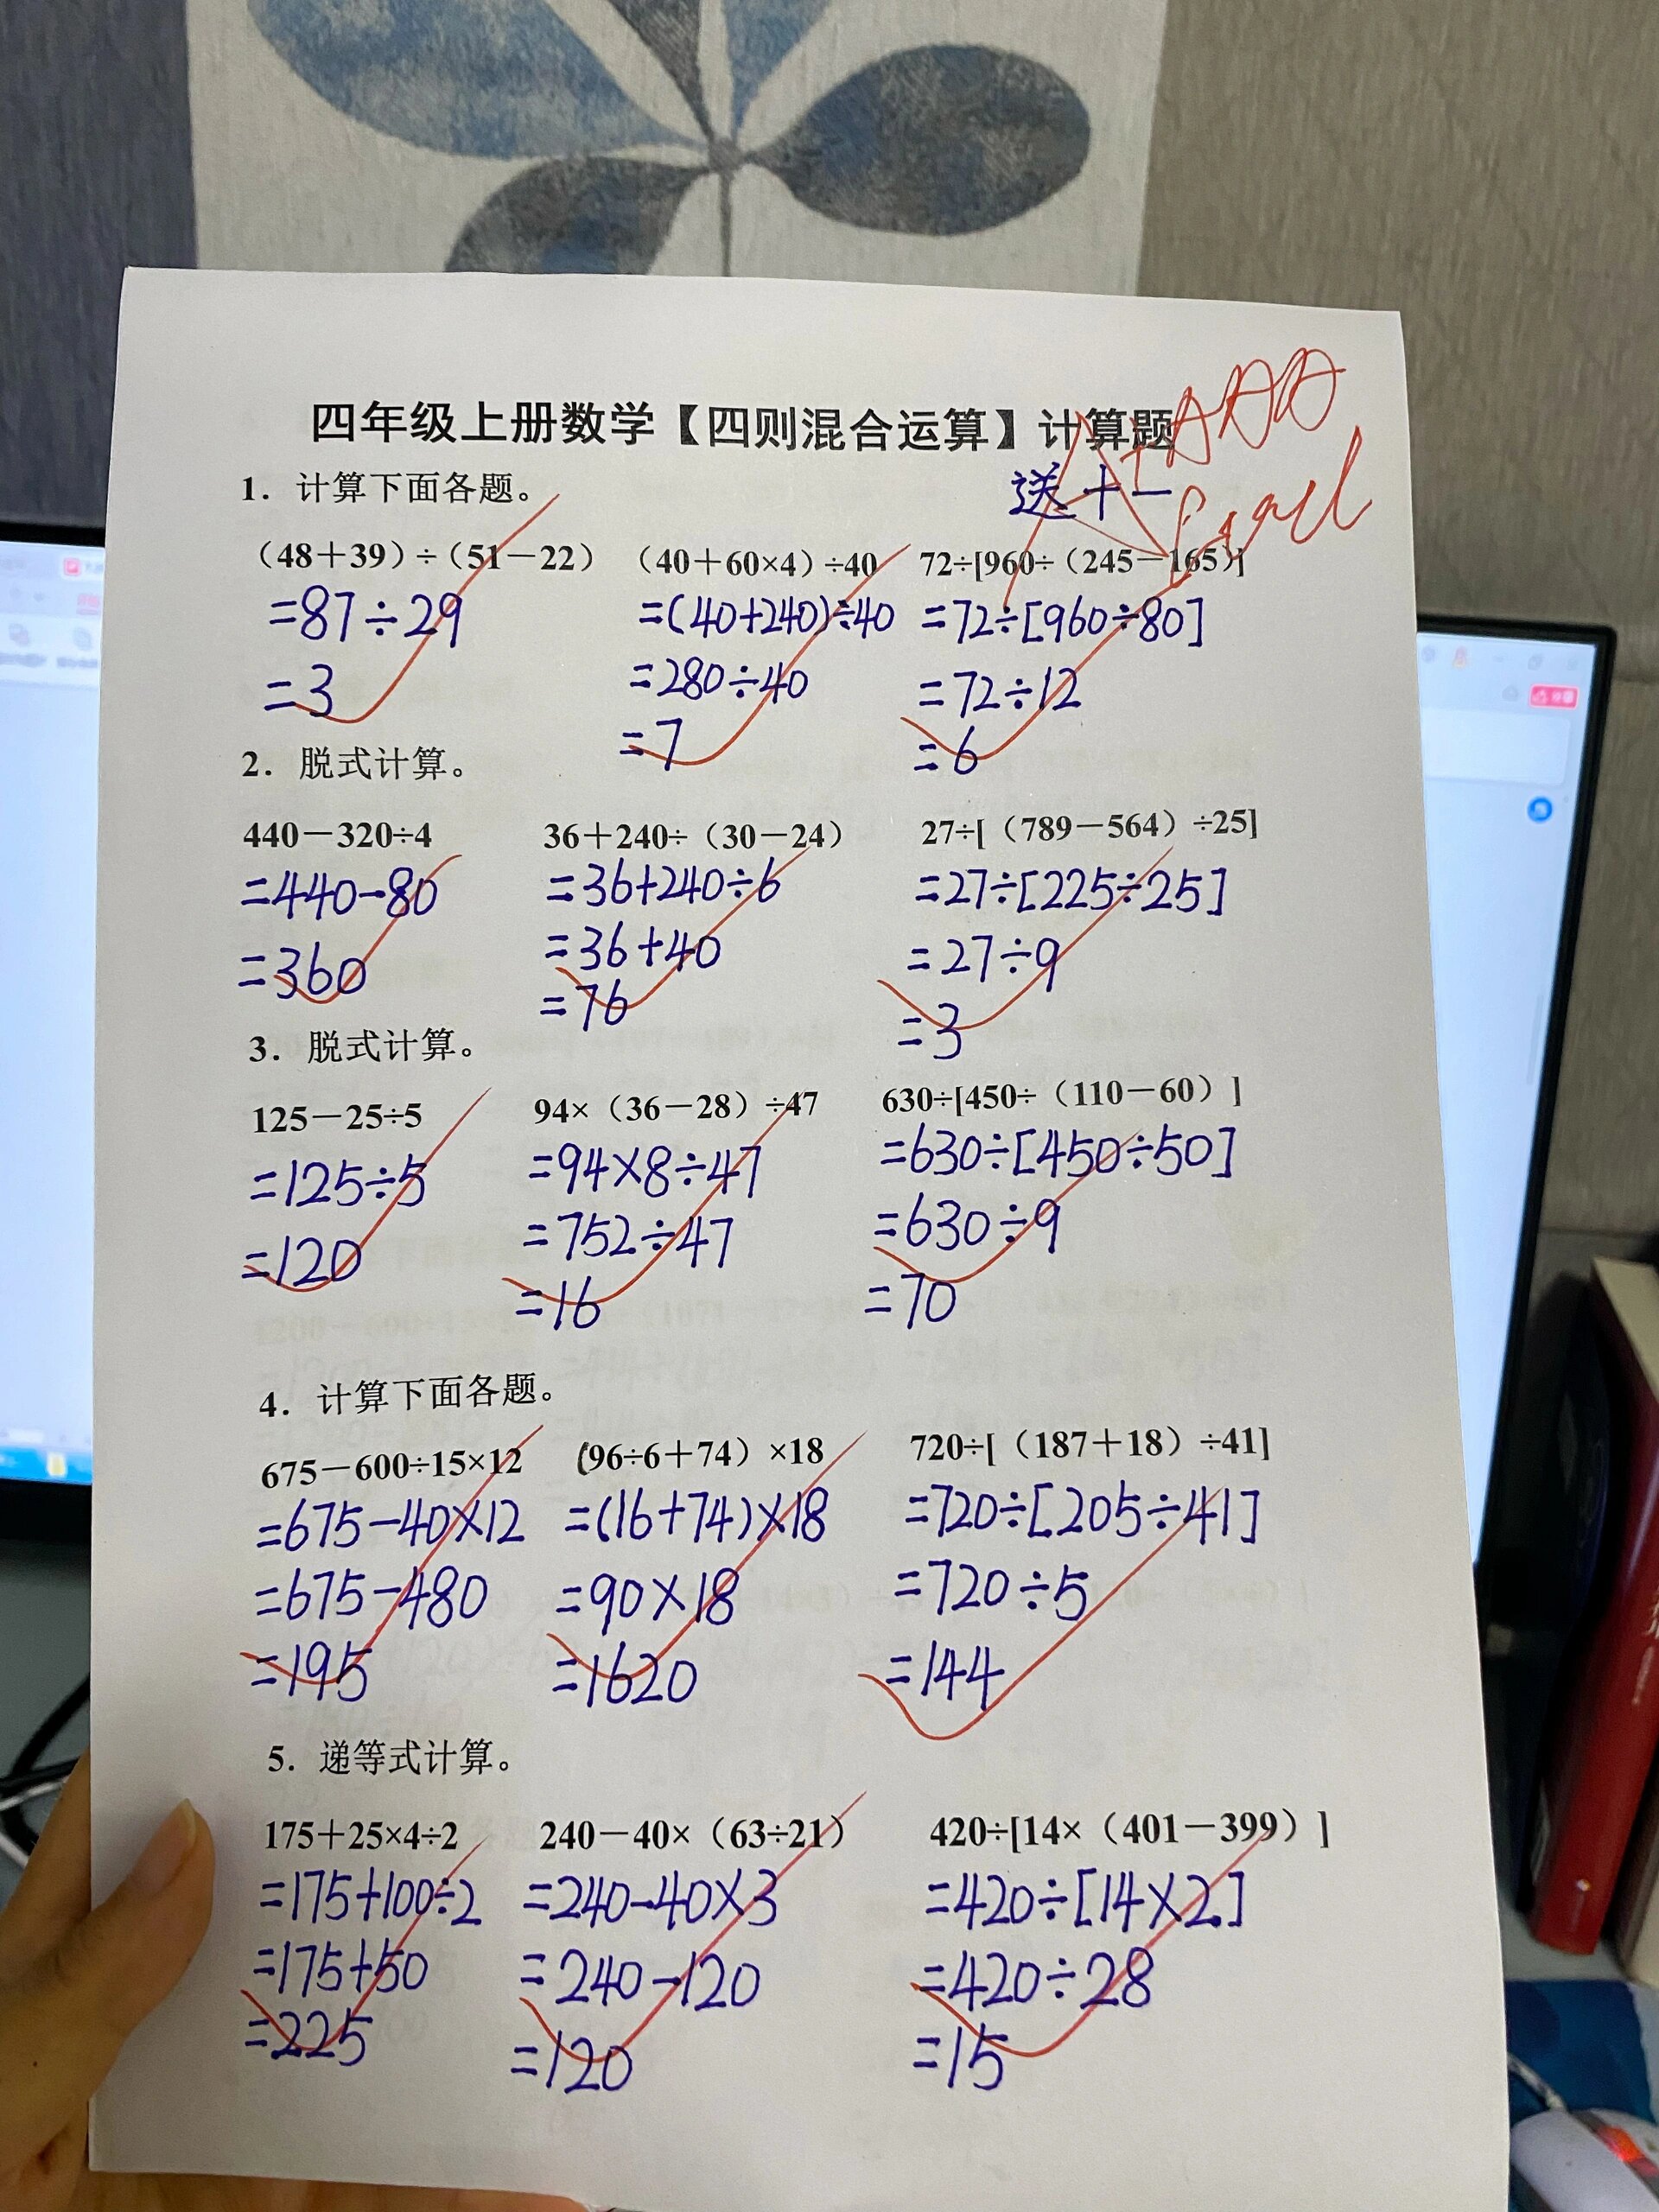 四年级上册数学【四则混合运算】计算题
送十一
1. 计算下面各题。
(48+39)÷(51-22) (40+60×4)÷40 72÷[960÷(245-165)]
=87÷29 =(40+240)÷40 =72÷[960÷80]
=3 =280÷40 =72÷12
=7 =6
2. 脱式计算。
440-320÷4 36+240÷(30-24) 27÷[(789-564)÷25]
=440-80 =36+240÷6 =27÷[225÷25]
=360 =36+40 =27÷9
=76 =3
3. 脱式计算。
125-25÷5 94×(36-28)÷47 630÷[450÷(110-60)]
=125÷5 =94×8÷47 =630÷[450÷50]
=120 =752÷47 =630÷9
=16 =70
4. 计算下面各题。
675-600÷15×12 (96÷6+74)×18 720÷[(187+18)÷41]
=675-40×12 =(16+74)×18 =720÷[205÷41]
=675-480 =90×18 =720÷5
=195 =1620 =144
5. 递等式计算。
175+25×4÷2 240-40×(63÷21) 420÷[14×(401-399)]
=175+100÷2 =240-40×3 =420÷[14×2]
=175+50 =240-120 =420÷28
=225 =120 =15